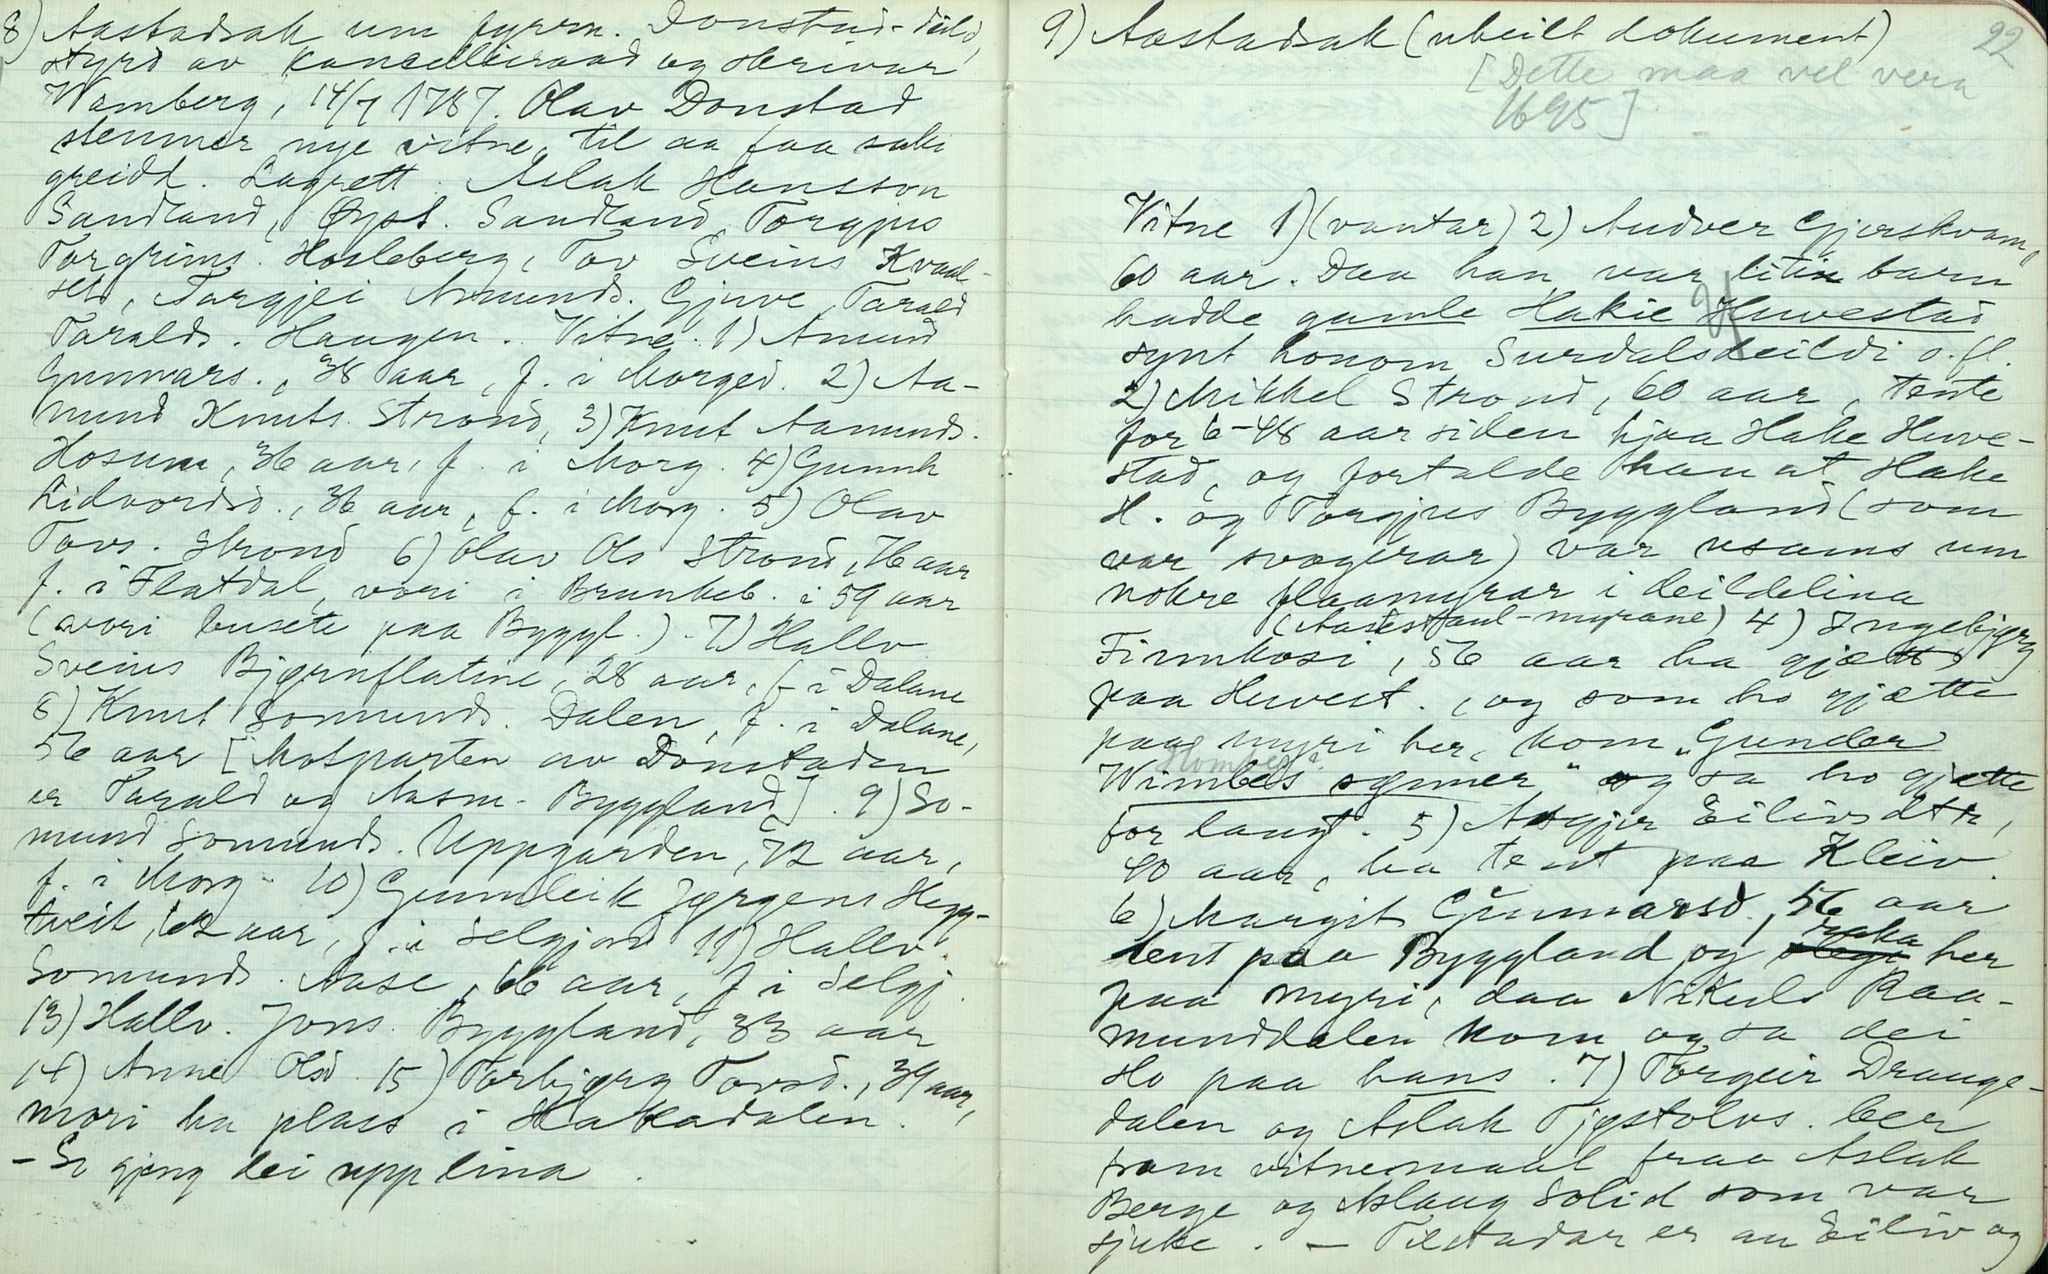 8) Aastadsak um fyrrn. Donstad-deild,
styrd av kancelliraad og skrivar
Wamberg, 14/7 1787. Olav Donstad
stemner nye vitne, til aa faa saki
greidd. Lagrett. Aslak Hansson
Sandland, Øyst. Sandland, Torgjus
Torgrims. Hosleberg, Tov Sveins Kvaal-
seth, Targjei Asmunds. Gjuve, Tarald
Taralds. Haugen. Vitne. 1) Amund
Gunnars., 38 aar, f. i Morged. 2) Aa-
mund Knuts. Strond, 3) Knut Aamunds.
Hosum, 36 aar, f. i Morg. 4) Gunnh
Lidvordsd., 36 aar, f. i Morg. 5) Olav
Tovs. Strond 6) Olav Ols Strond, 76 aar
f. i Flatdal, vori i Brunkeb. i 59 aar
(vori busete paa Byggl.). 7) Hallv.
Sveins Bjørnflatine, 28 aar, f. i Dalane
8) Knut Somunds. Dalen, f. i Dalane,
56 aar [Motparten av Donstaden
er Tarald og Aasm. Byggland]. 9) So-
mund Somunds. Uppgarden, 72 aar,
f. i Morg. 10) Gunnleik Jørgens Hegg-
tveit, 62 aar, f. i Selgjord 11) Hallv.
Somunds. Aase, 66 aar, f i Selgj.
13) Hallv. Jons. Byggland, 33 aar
14) Anne Olsd. 15) Torbjørg Tovsd., 39 aar,
mori ha plass i Hakadalen.
- So gjeng dei upp lina.
9) Aastadsak (ubeilt dokument) 22
[Dette maa vel vera
1695]
Vitne 1) (vantar) 2) Audver Gjerskvam,
60 aar. Daa han var litin barn
hadde gamle Hakie Huvestad
synt honom Surdalsdeildi o.fl.
2) Mikkel Strond, 60 aar, tente
for 6-48 aar siden hjaa Hake Huve-
stad, og fortalde han at Hake
H. og Torgjus Byggland (som
var svogerar) var usams um
nokre flaamyrar i deildelina
(Aasestaul-myrane) 4) Ingebjørg
Finnkosi, 56 aar ha gjætt
paa Huvest., og som ho gjætte
paa myri her, kom "Gunder
Wimbes sønner" og sa ho gjætte
for langt. 5) Asgjer Eilivsdtr,
40 aar, ha tent paa Kleiv.
6) Margit Gunnarsd., 56 aar
raka
tent paa Byggland og her
paa myri, daa Nikuls Raa-
munddalen kom og sa dei
slo paa hans. 7) Torgeir Drange-
dalen og Aslak Tjøstolvs. ber
fram vitnemaal fraa Aslak
Berge og Aslaug Solid som var
sjuke. - Tilstadar er au Eiliv og